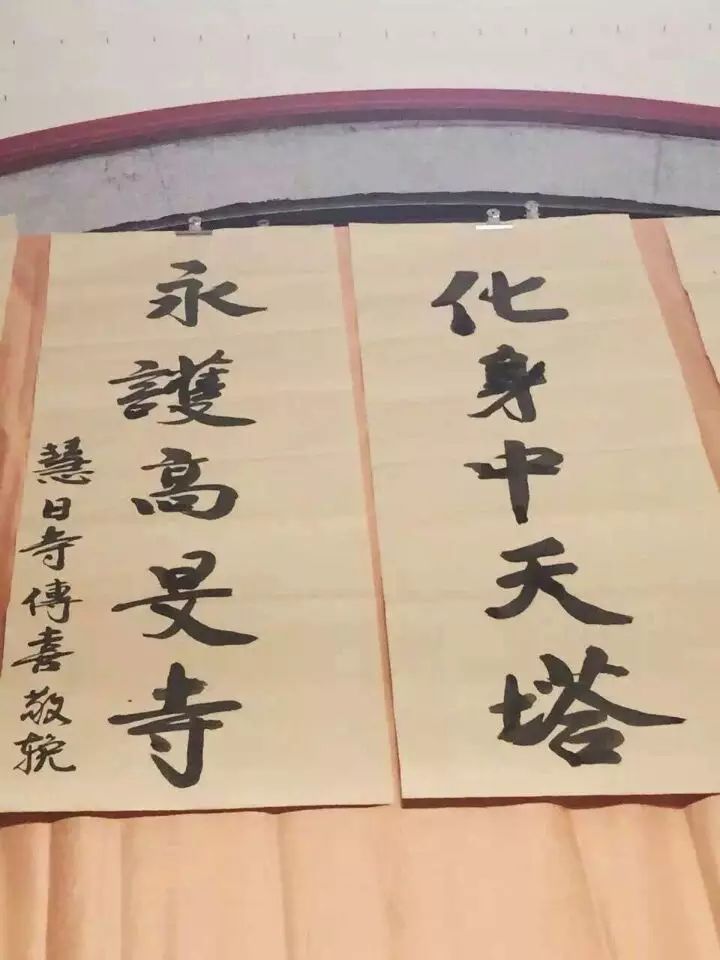 化身中天塔
永護高旻寺
慧日寺傳喜敬挽